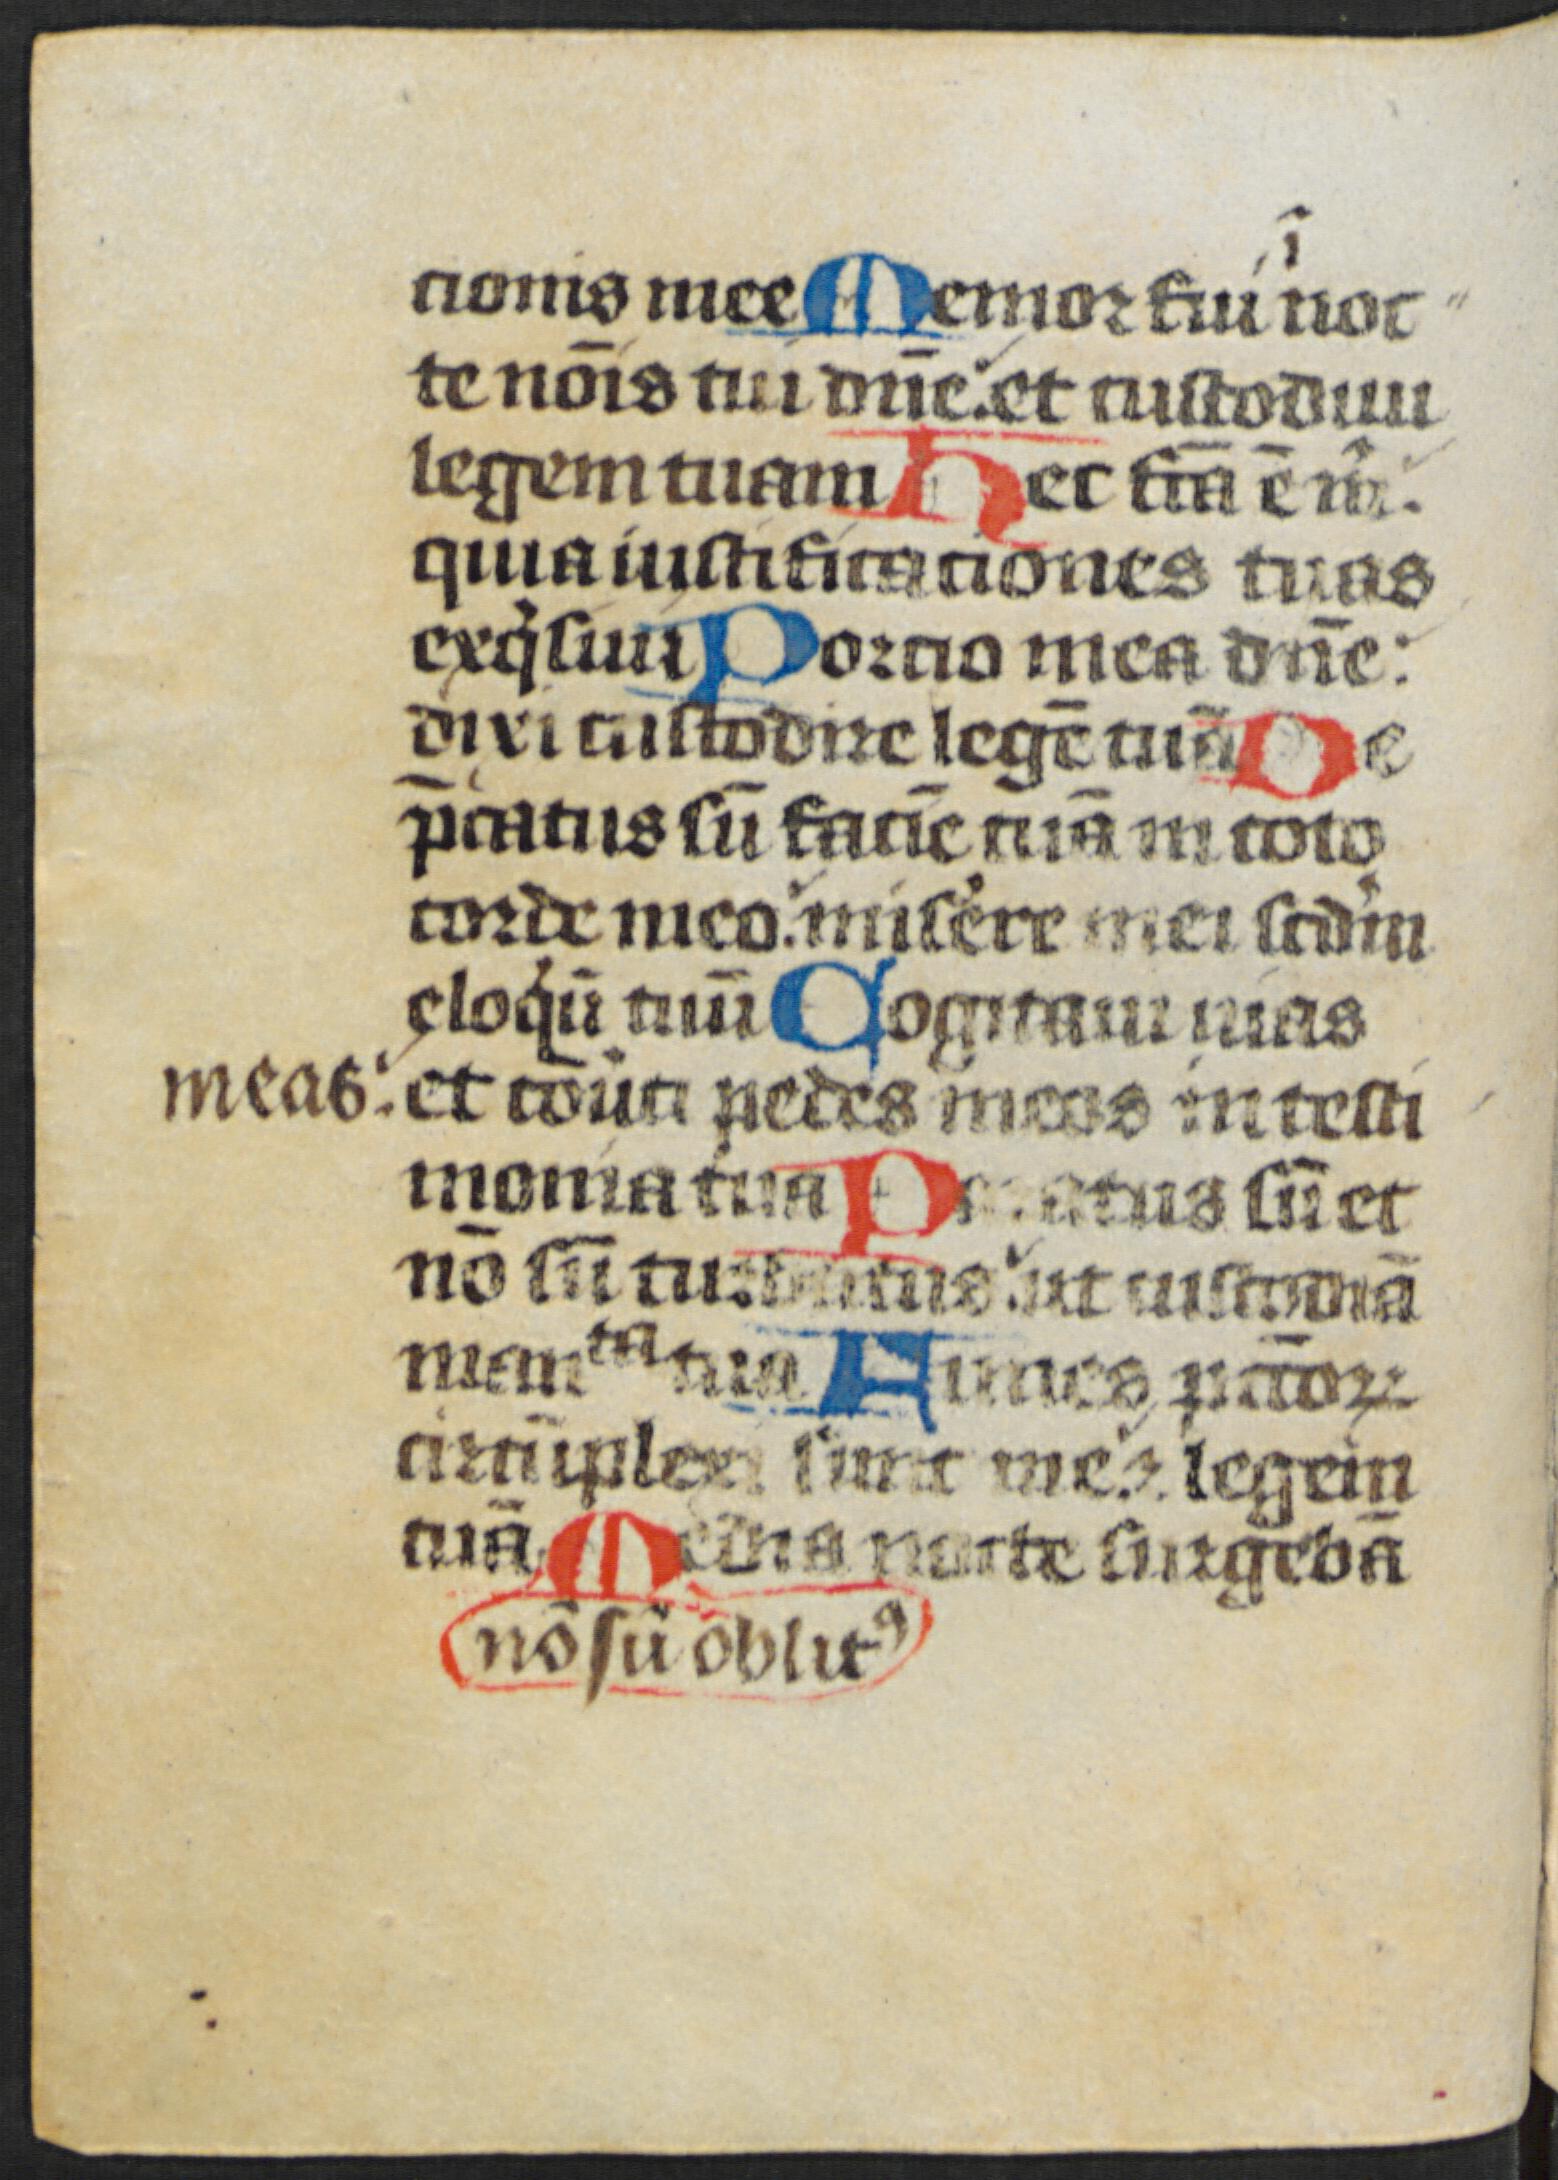 cionis mee Memor fui ī noc
te nōis tui dn̄e. et custodiui
legem tuam Hec fc̄a ē m̄.
quia iustificaciones tuas
exq̇siui Porcio mea dn̄e:
dixi custodire legē tuā De
p̄catus sū facīe tuā in toto
corde meo. miẜere mei scdm
eloq̇ū tuū Cogitaui uias
meas: et cōuti pedes meos in testi
monia tua Paratus sū et
nō sū turbatus. ut custodiā
manᵗᵃ tua Funes pc̄coꝝ
circūplexi sunt me. ⁊ legem
tuā Media nocte surgebā
nō sū oblitꝰ